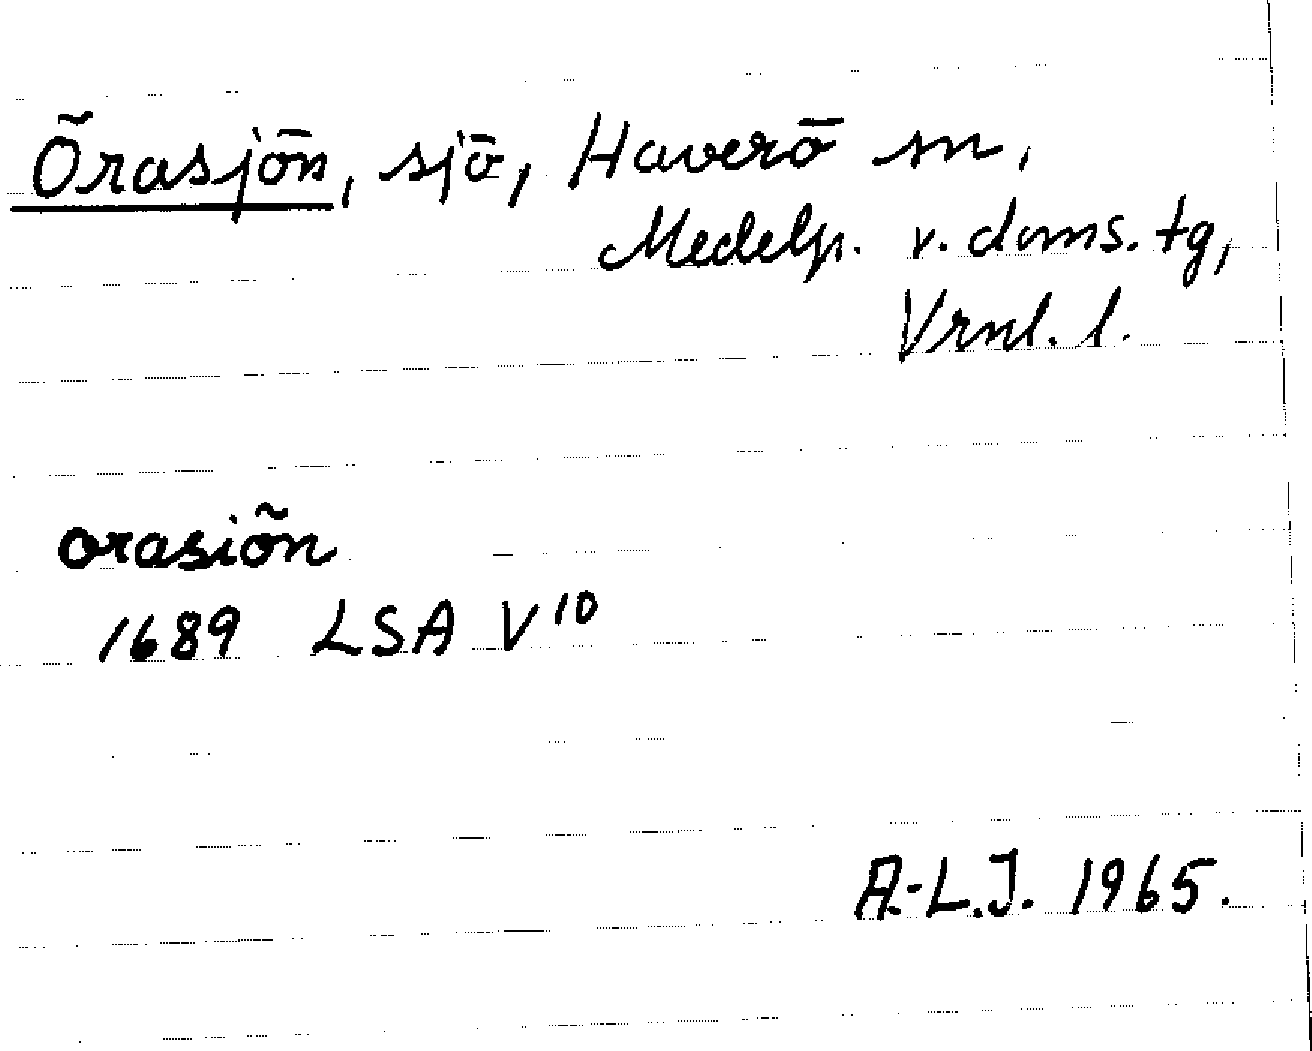 Örasjön, sjö, Haverö sn,
Medelp. v. doms. tg,
Vrnl. l.
orasiön
1689 LSA V¹⁰
A.-L.J. 1965.